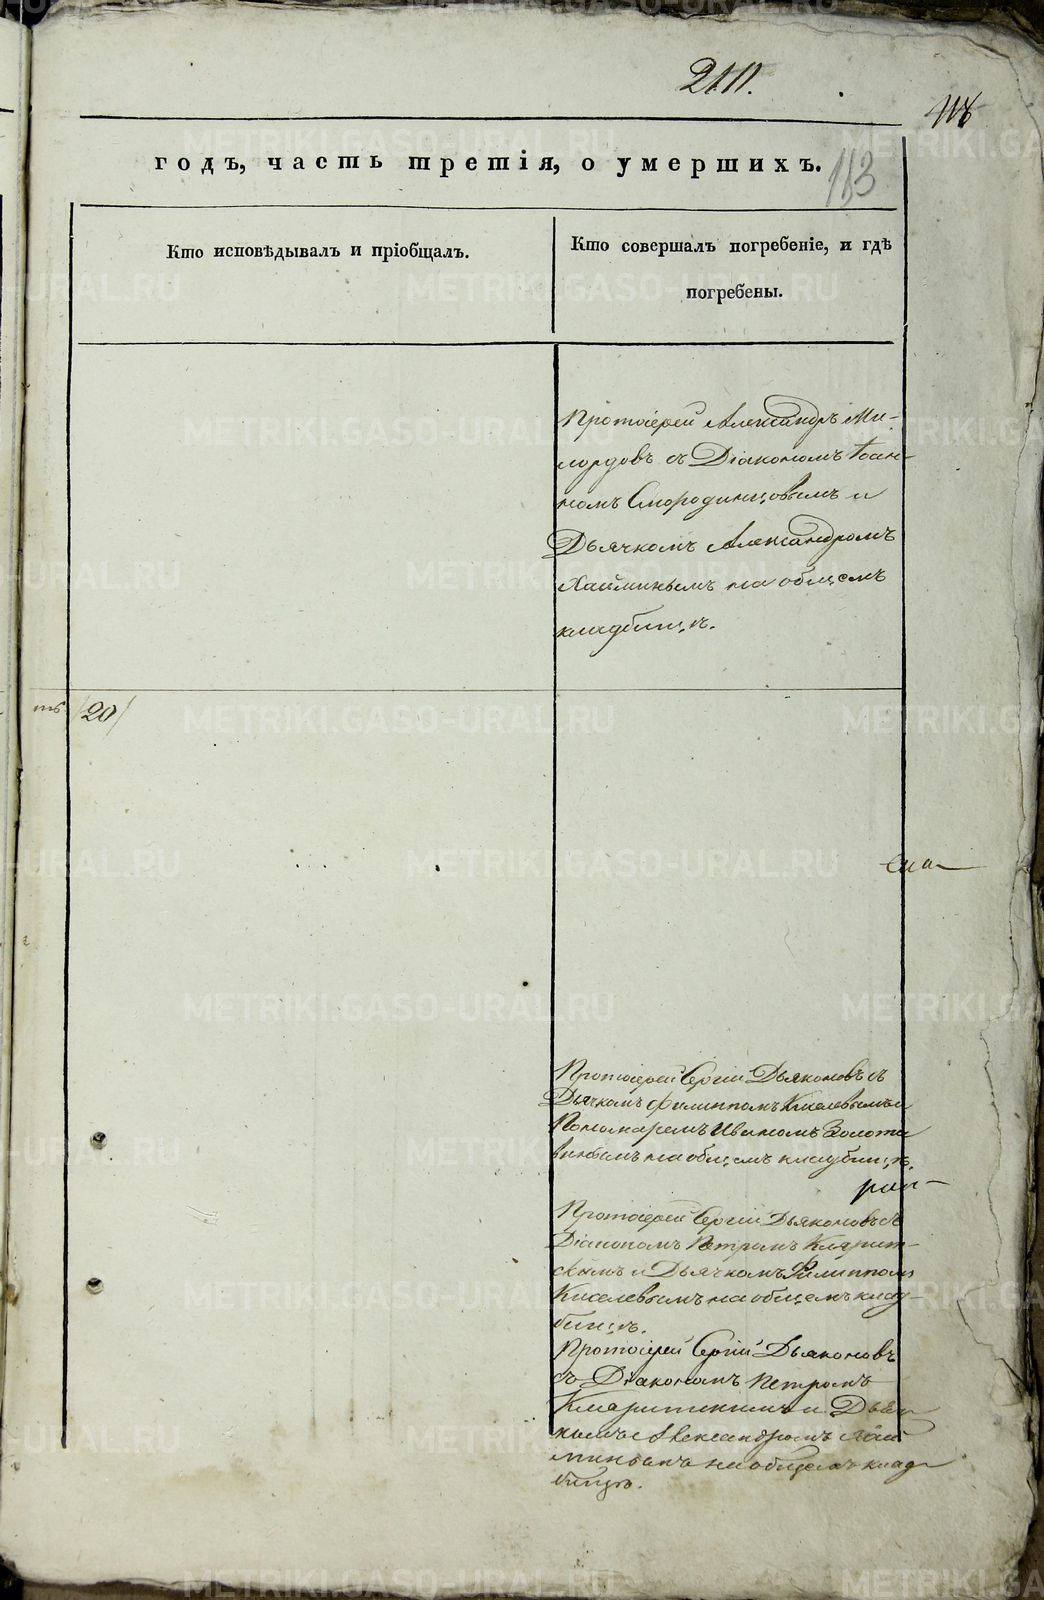 211.
118
годъ, часть третія, о умершихъ.
113
Кто исповѣдывалъ и пріобщалъ.
Кто совершалъ погребеніе, и гдѣ
погребены.
Протоіерей Александръ Ми-
лордовъ съ Діакономъ Іоан-
номъ Смородинцовымъ и
Дьячкомъ Александромъ
Хайминымъ на общемъ
кладбищѣ.
20
Протоіерей Сергій Дьяконовъ съ
Дьячкомъ Филиппомъ Киселевымъ и
Пономаремъ Иваномъ Золота
винымъ на общемъ кладбищѣ.
Протоіерей Сергій Дьяконовъ съ
Діакономъ Петромъ Кларит-
скимъ и Дьячкомъ Филиппомъ
Киселевымъ на общемъ клад-
бищѣ.
Протоіерей Сергій Дьяконовъ
съ Діакономъ Петромъ
Кларитскимъ и Дьяч
комъ Александромъ Хай
минымъ на общемъ клад
бищѣ.
METRIKI.GASO-URAL.RU